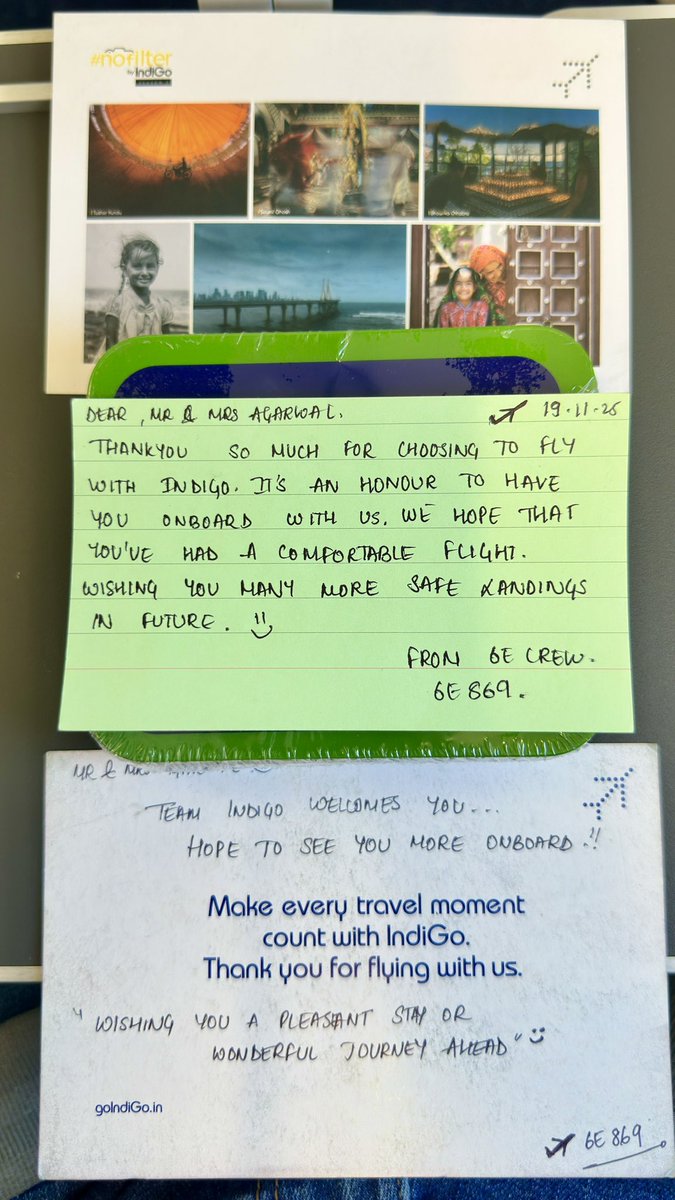 #nofilter
by IndiGo
DEAR, MR & MRS AGARWAL.
19.11.25
THANKYOU SO MUCH FOR CHOOSING TO FLY
WITH INDIGO. IT'S AN HONOUR TO HAVE
YOU ONBOARD WITH US. WE HOPE THAT
YOU'VE HAD A COMFORTABLE FLIGHT.
WISHING YOU MANY MORE SAFE LANDINGS
IN FUTURE.
FROM 6E CREW.
6E 869.
MR & MRS
TEAM INDIGO WELCOMES YOU...
HOPE TO SEE YOU MORE ONBOARD.!!
Make every travel moment
count with IndiGo.
Thank you for flying with us.
"WISHING YOU A PLEASANT STAY OR
WONDERFUL JOURNEY AHEAD"
goIndiGo.in
6E 869